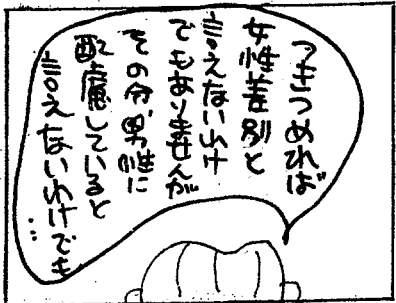 つきつめれば
女性差別と
言えないわけ
でもありませんが
その分、男性に
配慮していると
言えないわけでも
…